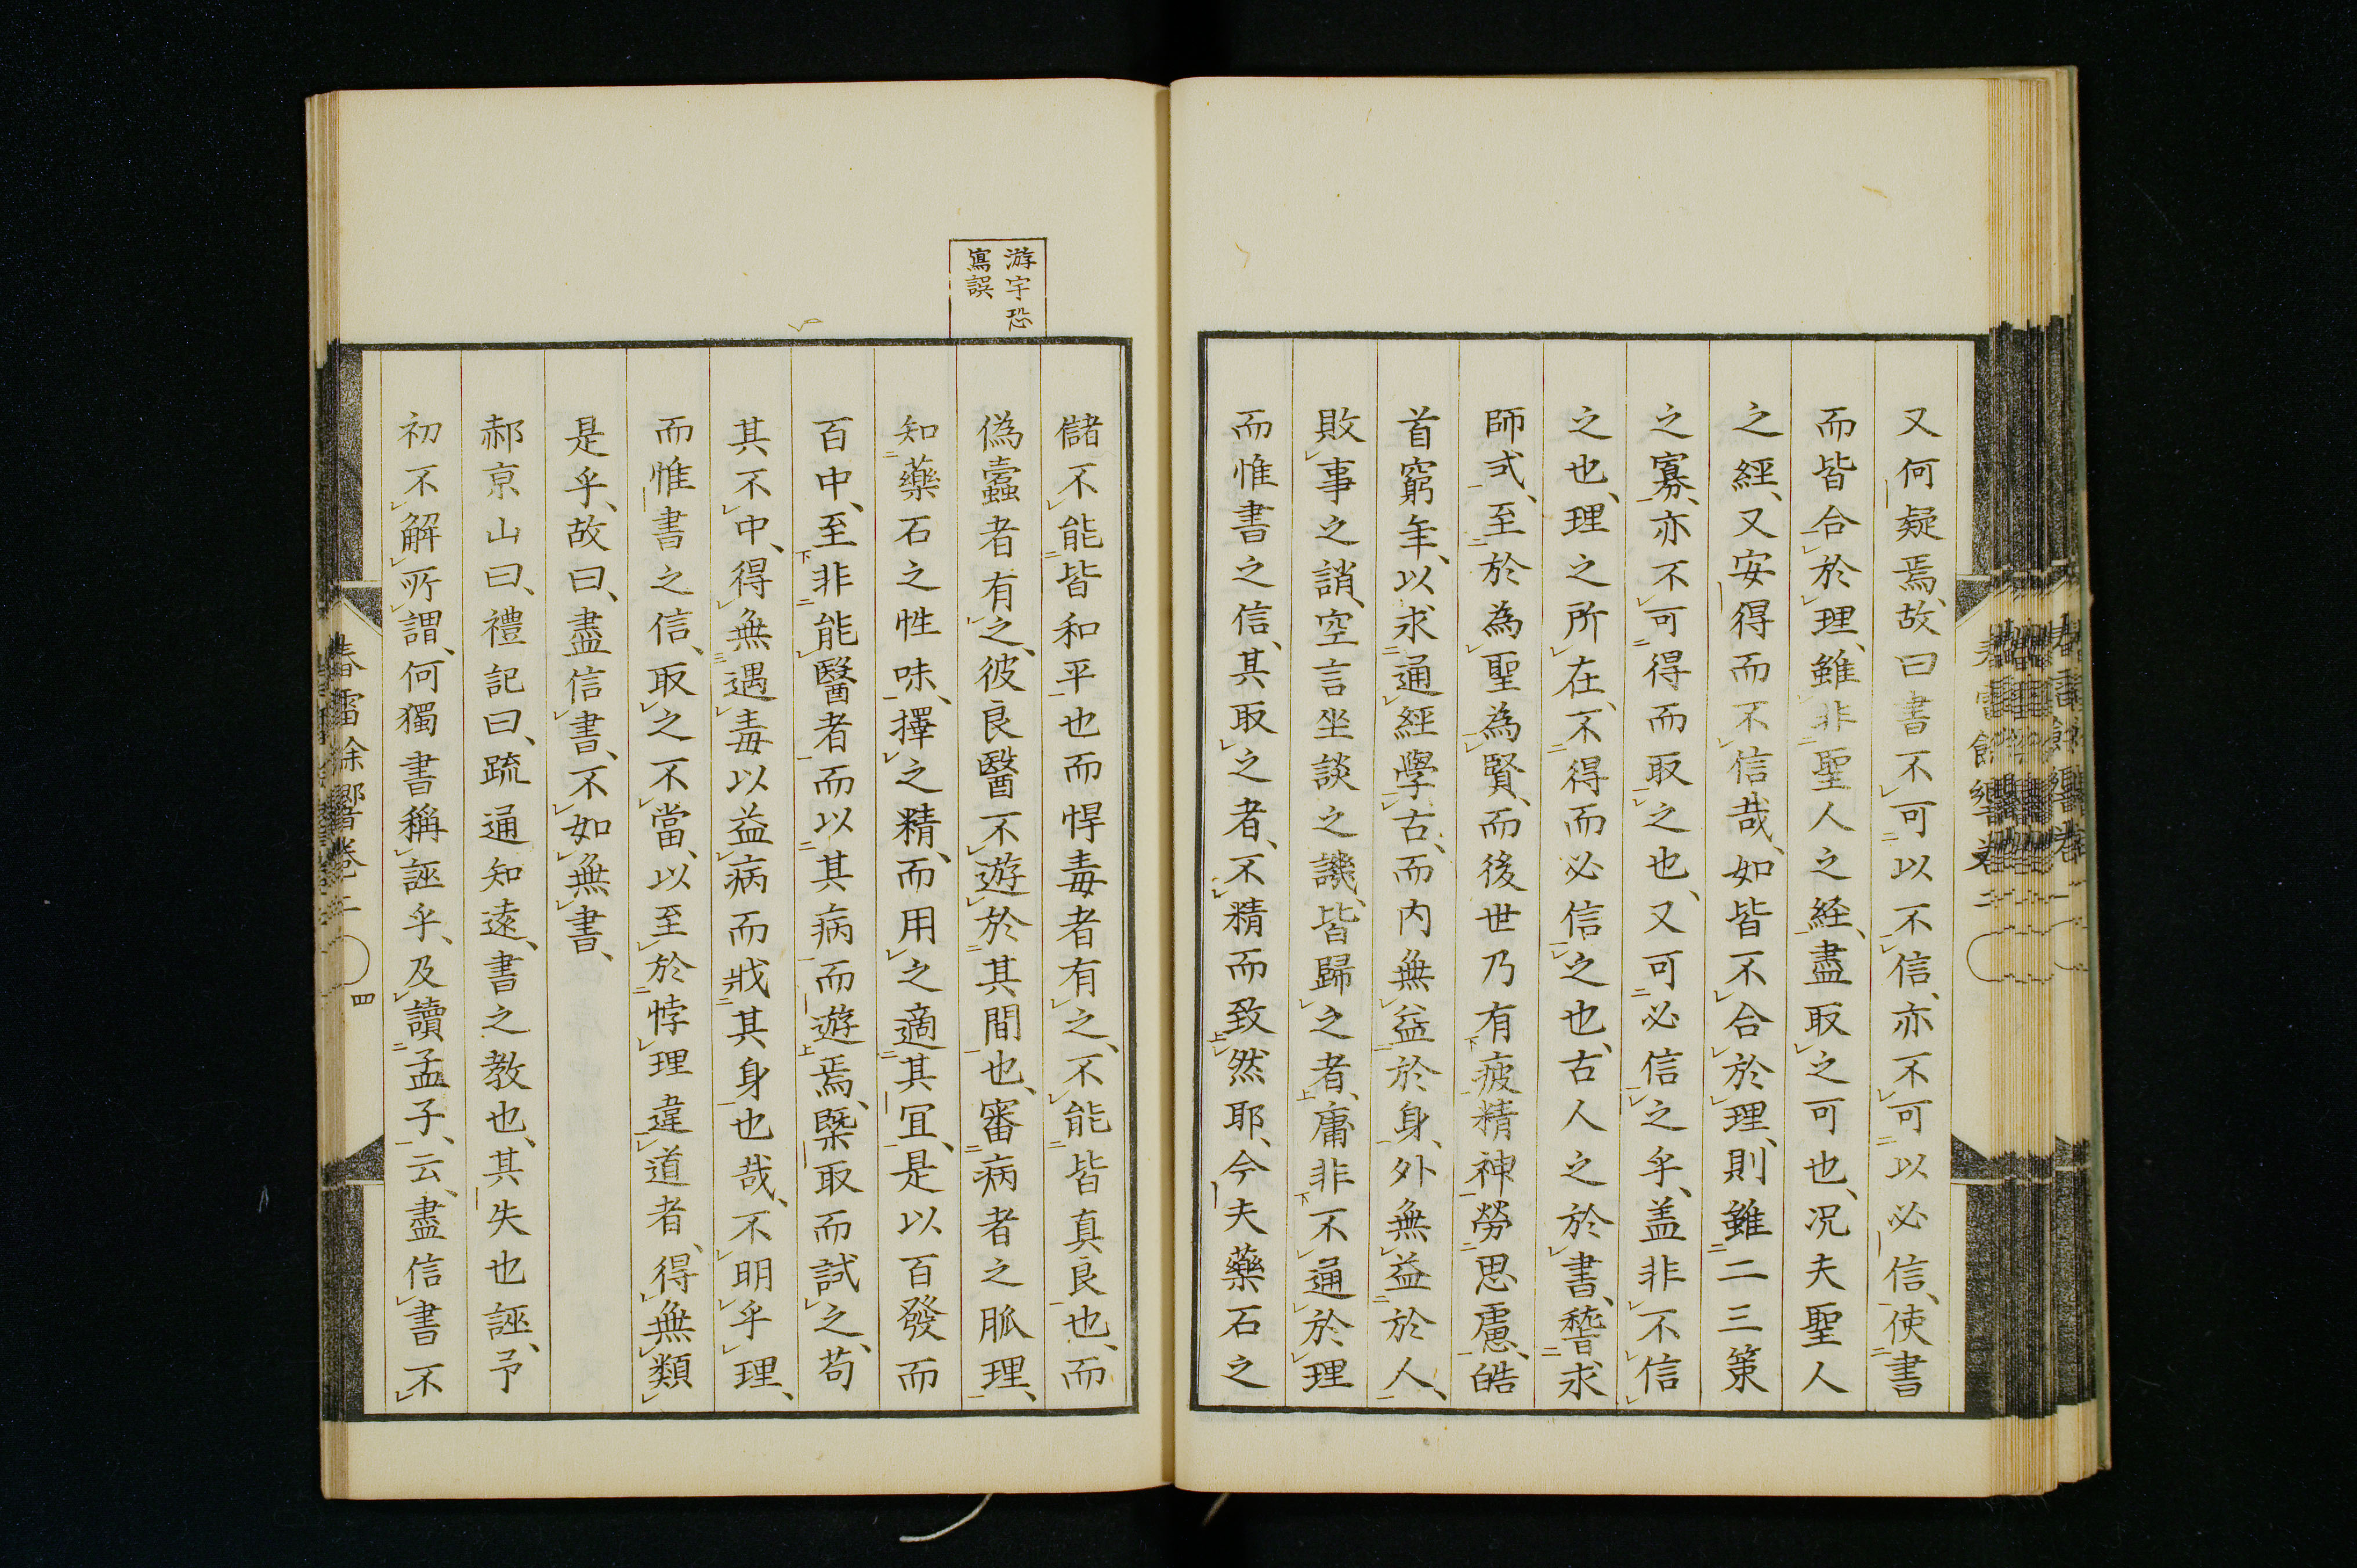 又何疑焉、故曰書不可以不信、亦不可以必信、使書
而皆合於理、雖非聖人之経、盡取之可也、況夫聖人
之經、又安得而不信哉、如皆不合於理、則雖二三策
之寡、亦不可得而取之也、又可必信之乎、盖非不信
之也、理之所在、不得而必信之也、古人之於書、嵆求
師式、至於為聖為賢、而後世乃有疲精神勞思慮、皓
首窮年、以求通經學古、而内無益於身、外無益於人、
敗事之誚、空言坐談之譏、皆歸之者、庸非不通於理
而惟書之信、其取之者、不精而致然耶、今夫藥石之
游字恐
寫誤
儲不能皆和平也而悍毒者有之、不能皆真良也、而
偽蠧者有之、彼良醫不遊於其間也、審病者之脈理、
知藥石之性味、擇之精、而用之適其冝、是以百發而
百中、至非能醫者而以其病而遊焉、槩取而試之、苟
其不中、得無遇毒以益病而戕其身也哉、不明乎理、
而惟書之信、取之不當、以至於悖理違道者、得無類
是乎、故曰、盡信書、不如無書、
郝亰山曰、禮記曰、疏通知逺、書之教也、其失也誣、予
初不解所謂、何獨書稱誣乎、及讀孟子、云、盡信書不
春雷餘響卷二
四